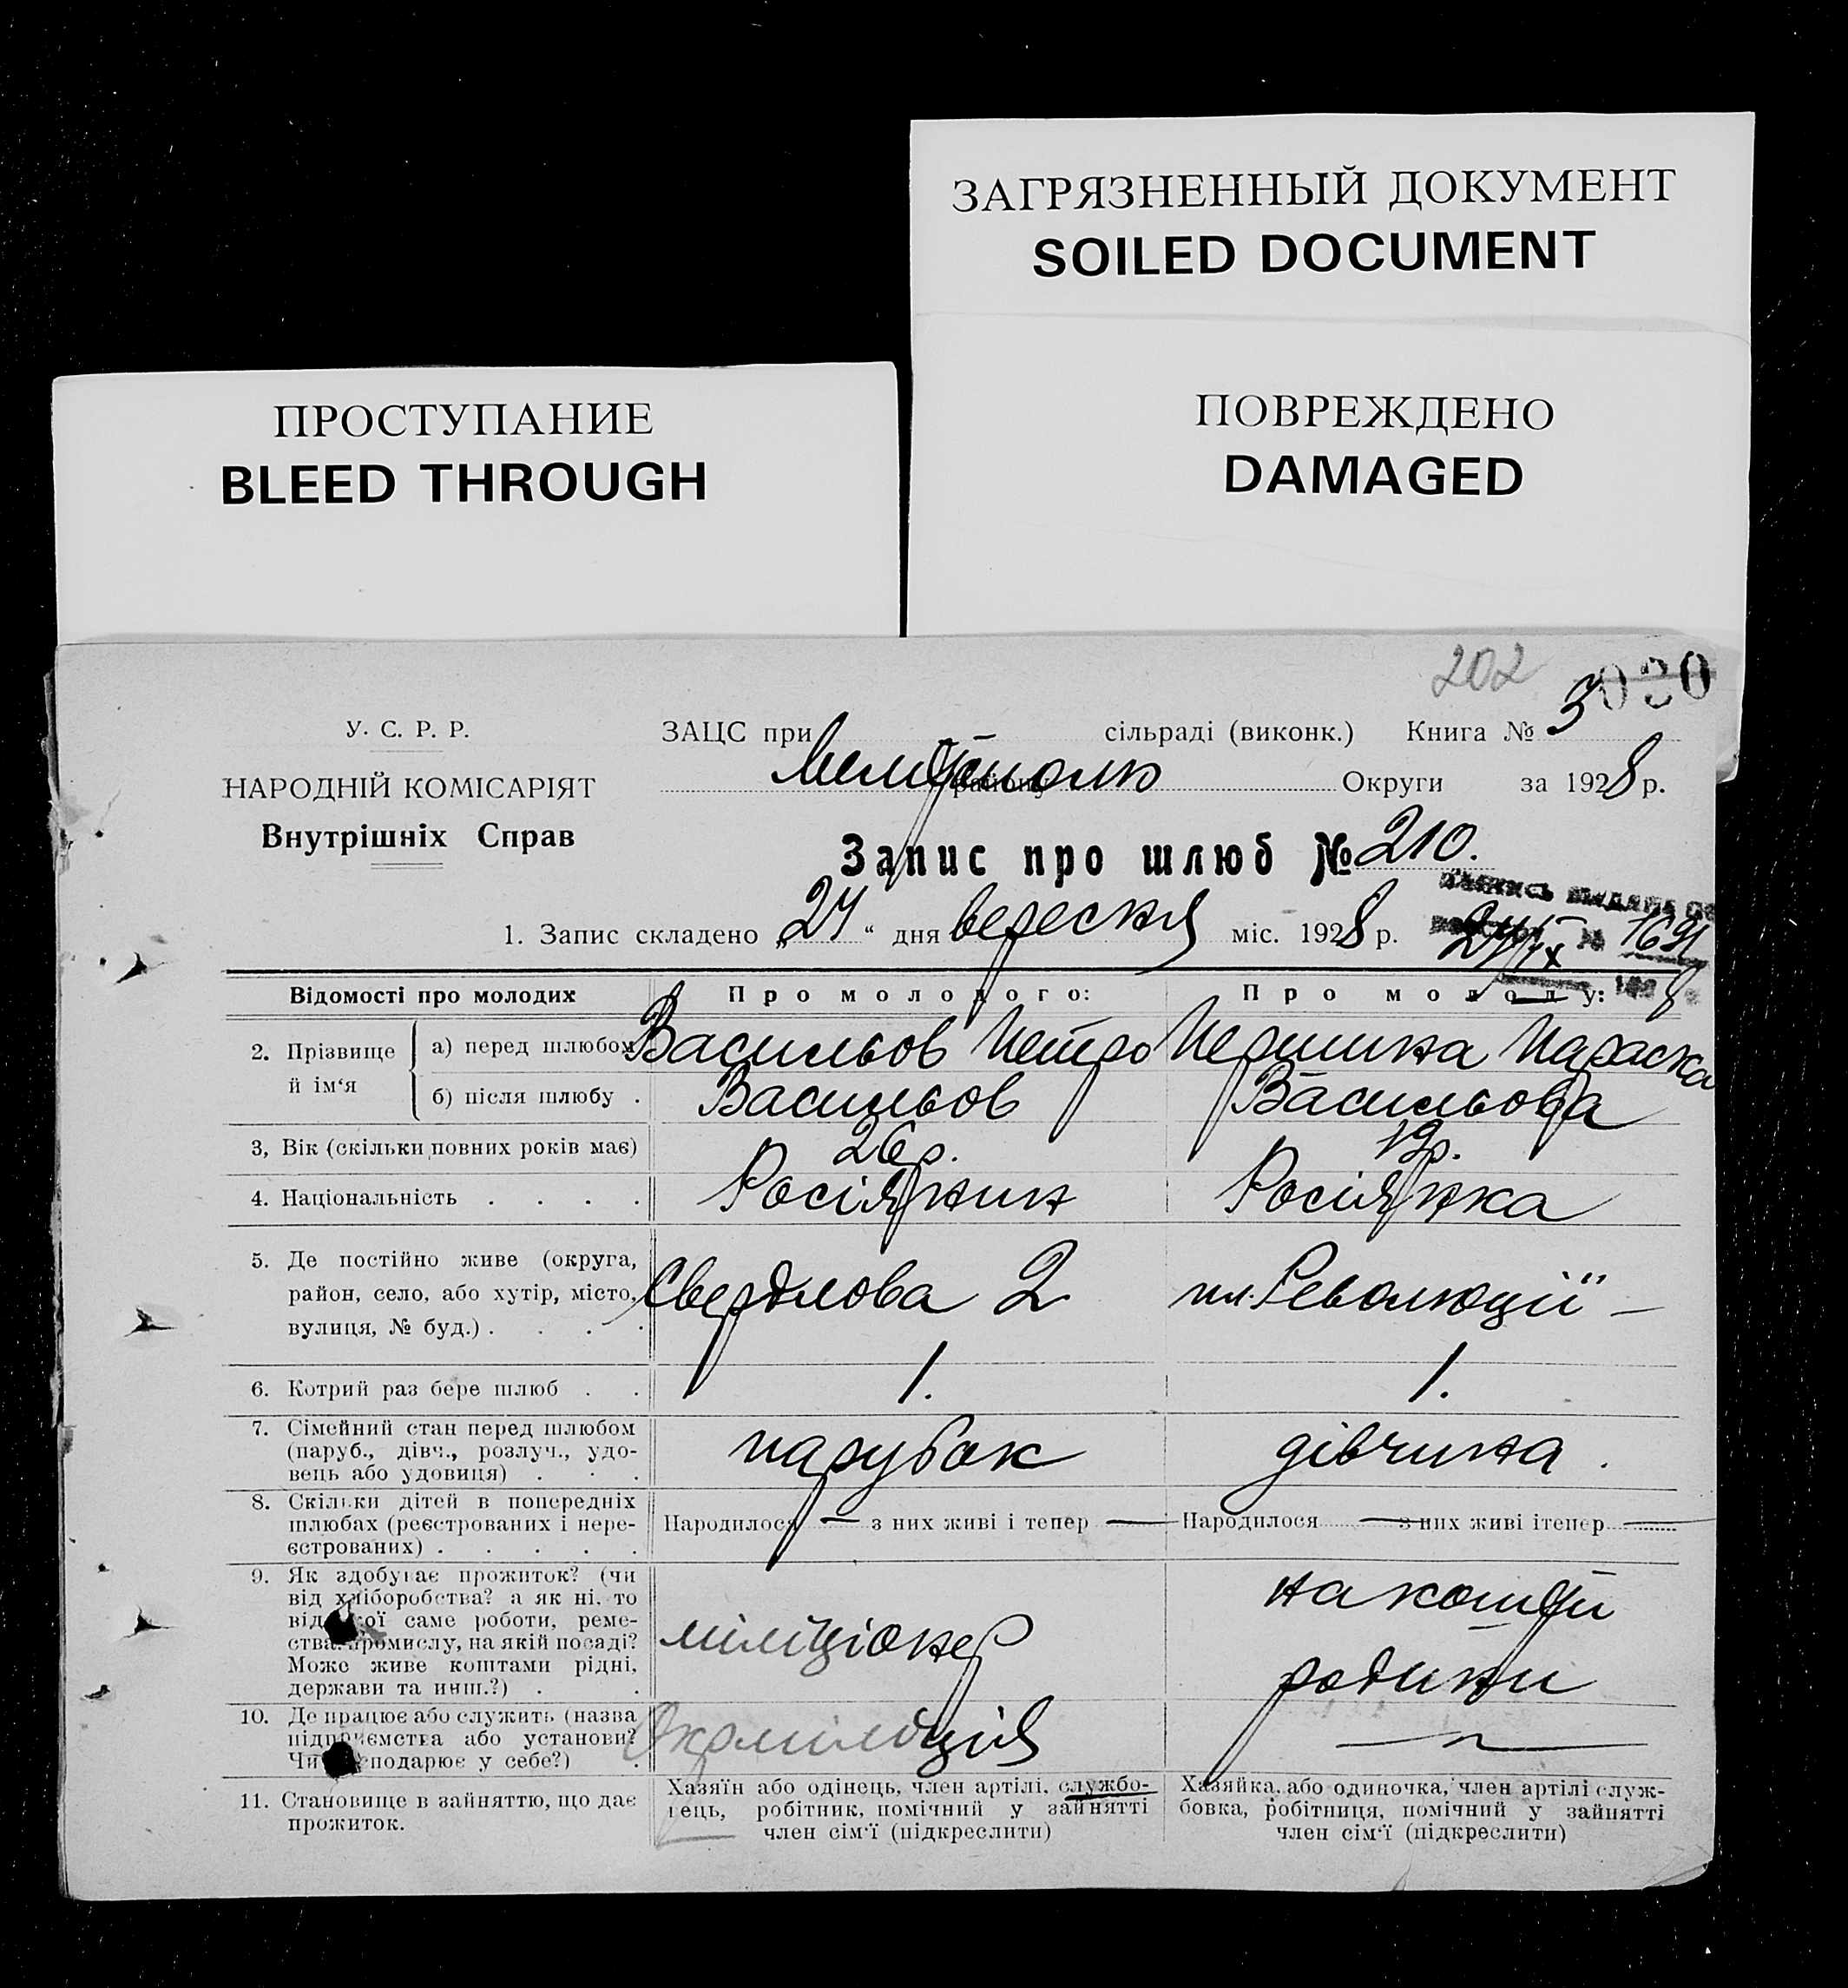 ЗАГРЯЗНЕННЫЙ ДОКУМЕНТ
SOILED DOCUMENT
ПРОСТУПАНИЕ
BLEED THROUGH
ПОВРЕЖДЕНО
DAMAGED
202
У. С. Р. Р.
НАРОДНІЙ КОМІСАРІЯТ
Внутрішніх Справ
ЗАЦС при сільраді (виконк.) Книга № 3
району Округи за 1928 р.
Запис про шлюб № 210.
1. Запис складено „ “ дня вересня міс. 1928 р.
Відомості про молодих
Про молодого:
Про молоду:
2. Прізвище й ім‘я
а) перед шлюбом Васильов Петро
Параска
б) після шлюбу . Васильов
Васильова
3, Вік (скільки повних років має) 26 р.
19 р.
4. Національність . . . . Росіянин
Росіянка
5. Де постійно живе (округа,
район, село, або хутір, місто,
вулиця, № буд.) . . . .
Свердлова 2
пл. Революції —
6. Котрий раз бере шлюб . . 1.
1.
7. Сімейний стан перед шлюбом
(паруб., дівч., розлуч., удо-
вець або удовиця) . . .
парубок
дівчина .
8. Скільки дітей в попередніх
шлюбах (реєстрованих і нере-
єстрованих) . . . . .
Народилося — з них живі і тепер —
Народилося — з них живі ітепер —
9. Як здобуває прожиток? (чи
від хліборобства? а як ні, то
від саме роботи, реме-
ства, промислу, на якій посаді?
Може живе коштами рідні,
держави та инш.?) . .
міліціонер
на кошти
родини
10. Де працює або служить (назва
підприємства або установи?
Чи у себе?) .
Окрміліція
11. Становище в зайняттю, що дає
прожиток.
Хазяїн або одінець, член артілі, службо-
вець, робітник, помічний у зайнятті
член сім‘ї (підкреслити)
Хазяйка, або одиночка, член артілі служ-
бовка, робітниця, помічний у зайнятті
член сім‘ї (підкреслити)